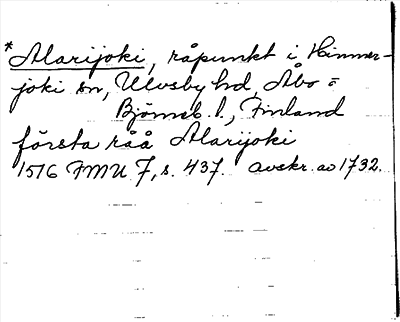 *Alarijoki, råpunkt i Hinner-
joki sn, Ulvsby hd, Åbo =
Björneb. l., Finland
första råå Alarijoki
1516 FMU 7, s. 437. avskr. av 1732.